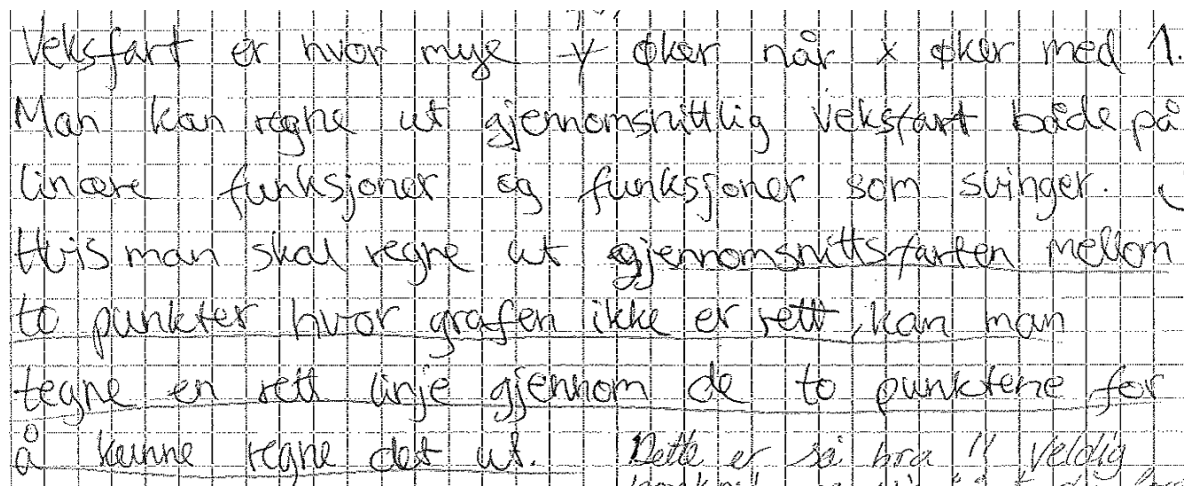 Veksfart er hvor mye y øker når x øker med 1.
Man kan regne ut gjennomsnittlig veksfart både på
linære funksjoner og funksjoner som svinger.
Hvis man skal regne ut gjennomsnittsfarten mellom
to punkter hvor grafen ikke er rett, kan man
tegne en rett linje gjennom de to punktene for
å kunne regne det ut. Dette er så bra !! Veldig